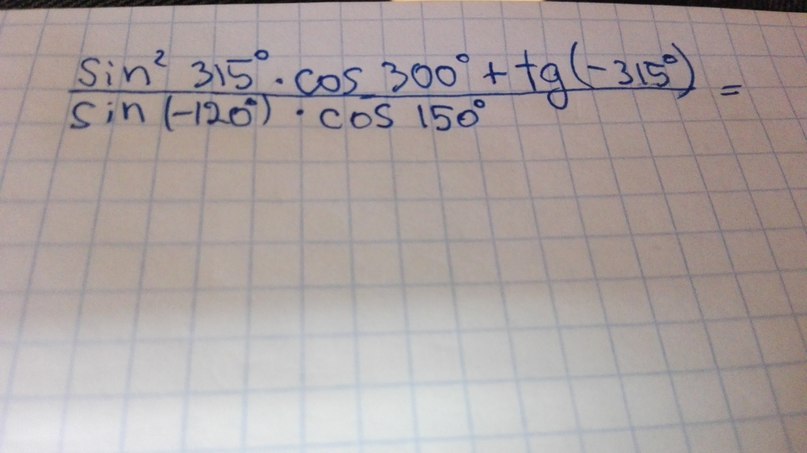 sin² 315° · cos 300° + tg(-315°) =
sin (-120°) · cos 150°